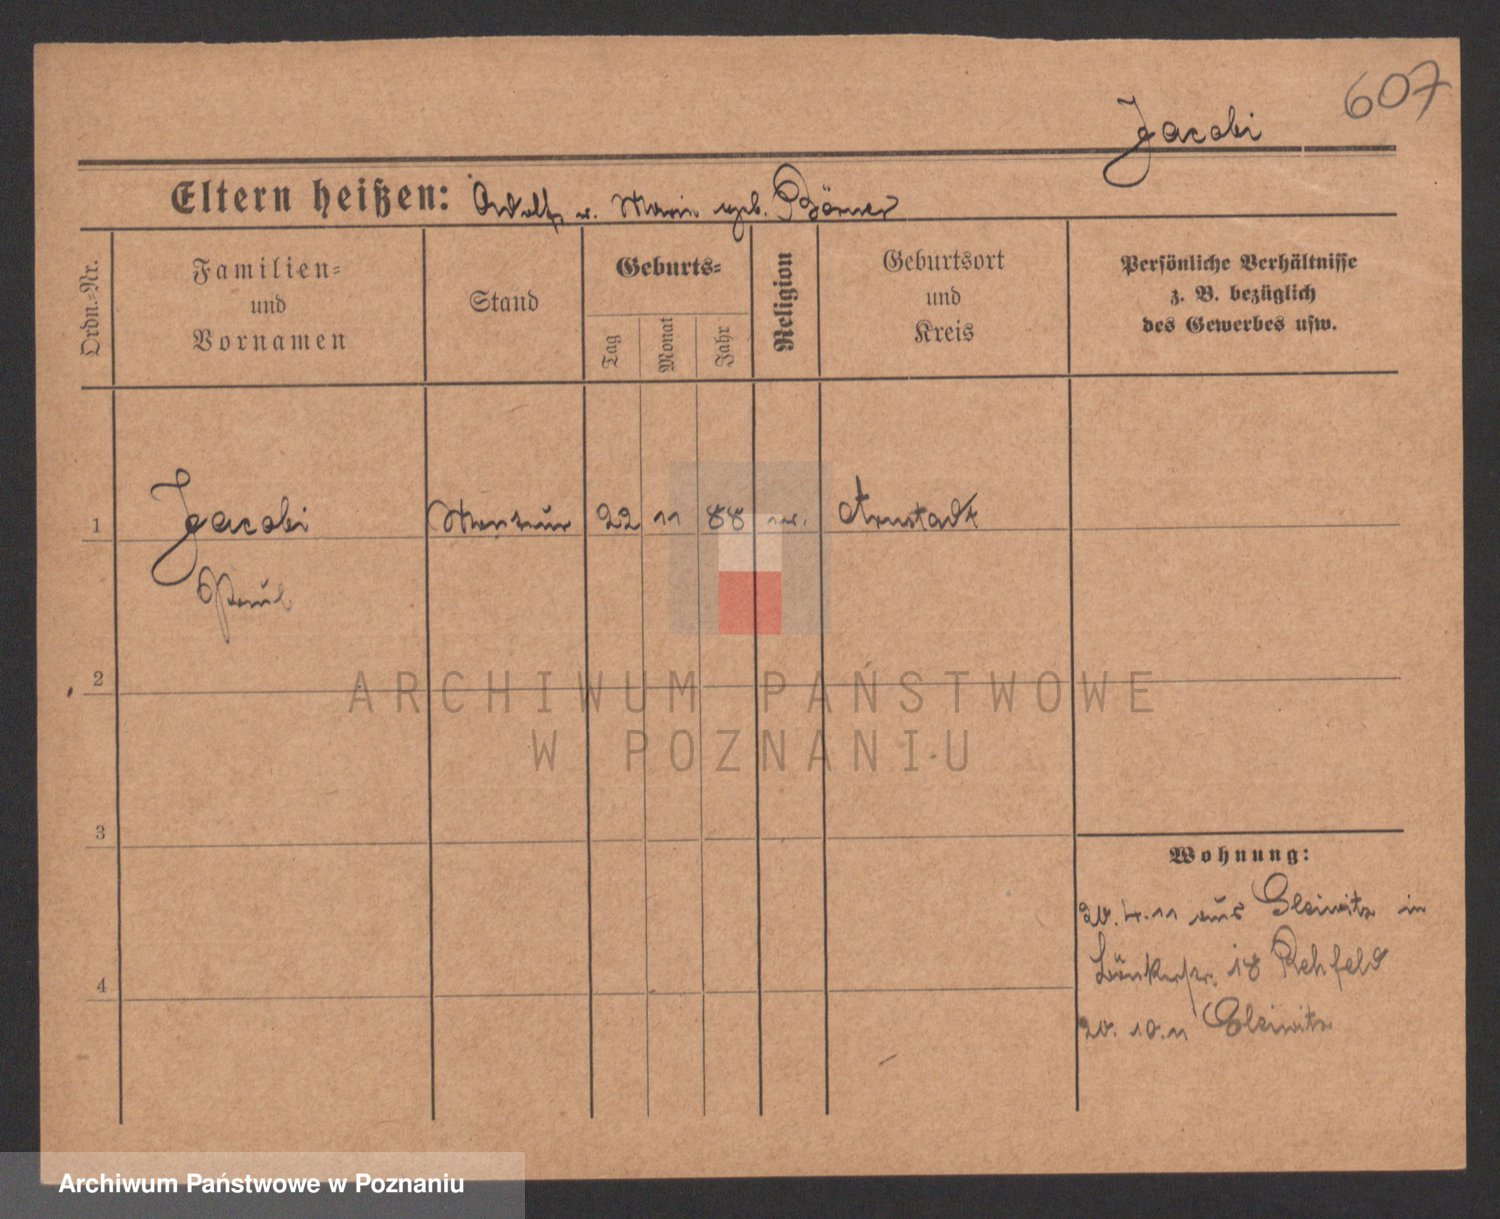 607
Jacobi
Eltern heißen: Adolf u. Marie geb. Börner
Ordn.-Nr.
Familien-
und
Vornamen
Stand
Geburts-
Tag
Monat
Jahr
Religion
Geburtsort
und
Kreis
Persönliche Verhältnisse
z. B. bezüglich
des Gewerbes usw.
1 Jacobi Monteur 22 11 88 ev. Arnstadt
Paul
2
3
4
Wohnung:
20.4.11 aus Gleiwitz in
18 Rehfeld
20.10.11 Gleiwitz
ARCHIWUM PAŃSTWOWE
W POZNANIU
Archiwum Państwowe w Poznaniu